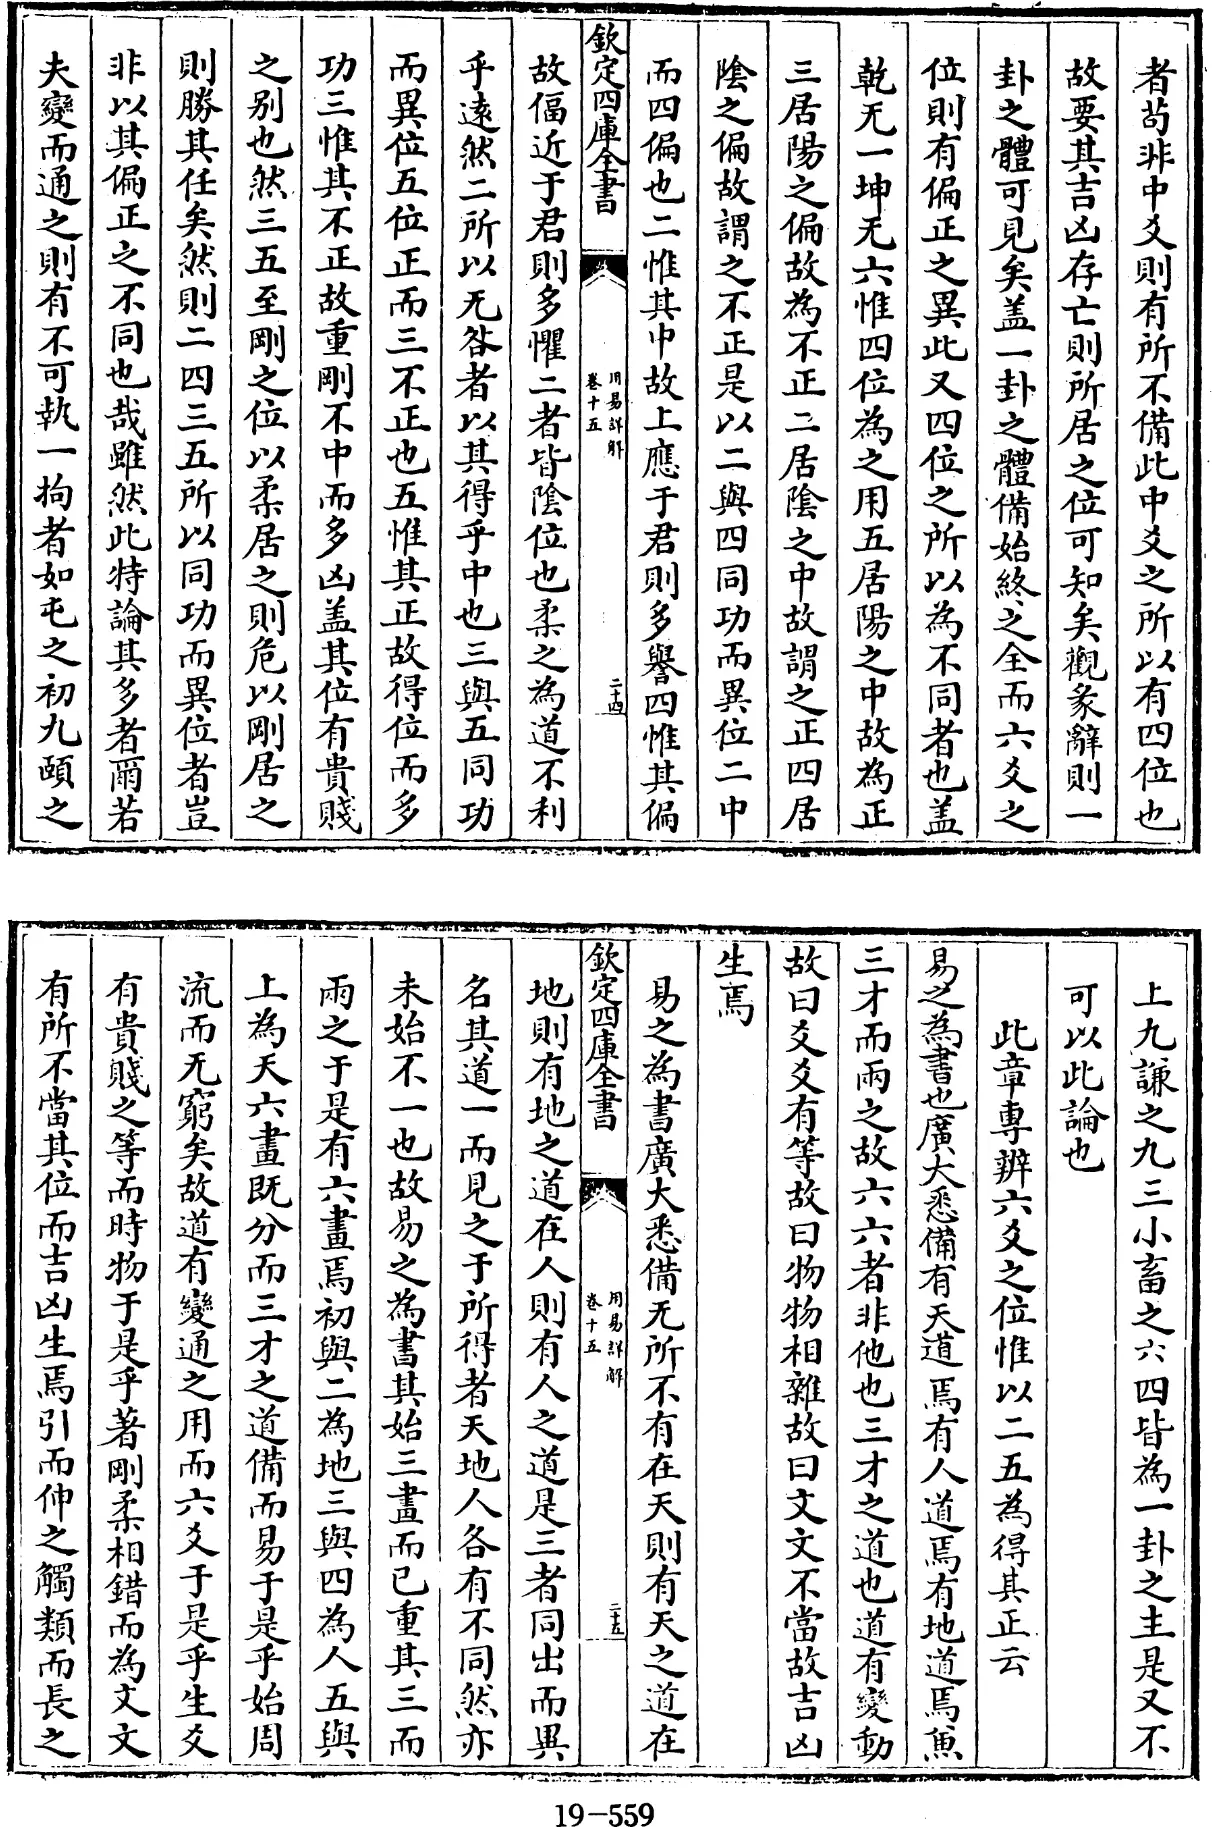 者苟非中爻則有所不備此中爻之所以有四位也
故要其吉凶存亡則所居之位可知矣觀彖辭則一
卦之體可見矣盖一卦之體備始終之全而六爻之
位則有偏正之異此又四位之所以為不同者也盖
乾无一坤无六惟四位為之用五居陽之中故為正
三居陽之偏故為不正二居陰之中故謂之正四居
陰之偏故謂之不正是以二與四同功而異位二中
而四偏也二惟其中故上應于君則多譽四惟其偏
欽定四庫全書
用易詳解
卷十五
二十四
故偪近于君則多懼二者皆陰位也柔之為道不利
乎逺然二所以无咎者以其得乎中也三與五同功
而異位五位正而三不正也五惟其正故得位而多
功三惟其不正故重剛不中而多凶盖其位有貴賤
之别也然三五至剛之位以柔居之則危以剛居之
則勝其任矣然則二四三五所以同功而異位者豈
非以其偏正之不同也哉雖然此特論其多者爾若
夫變而通之則有不可執一拘者如屯之初九頤之
上九謙之九三小畜之六四皆為一卦之主是又不
可以此論也
此章專辨六爻之位惟以二五為得其正云
易之為書也廣大悉備有天道焉有人道焉有地道焉兼
三才而兩之故六六者非他也三才之道也道有變動
故曰爻爻有等故曰物物相雜故曰文文不當故吉凶
生焉
易之為書廣大悉備无所不有在天則有天之道在
欽定四庫全書
用易詳解
卷十五
二十五
地則有地之道在人則有人之道是三者同出而異
名其道一而見之于所得者天地人各有不同然亦
未始不一也故易之為書其始三畫而已重其三而
兩之于是有六畫焉初與二為地三與四為人五與
上為天六畫既分而三才之道備而易于是乎始周
流而无窮矣故道有變通之用而六爻于是乎生爻
有貴賤之等而時物于是乎著剛柔相錯而為文文
有所不當其位而吉凶生焉引而伸之觸類而長之
19-559